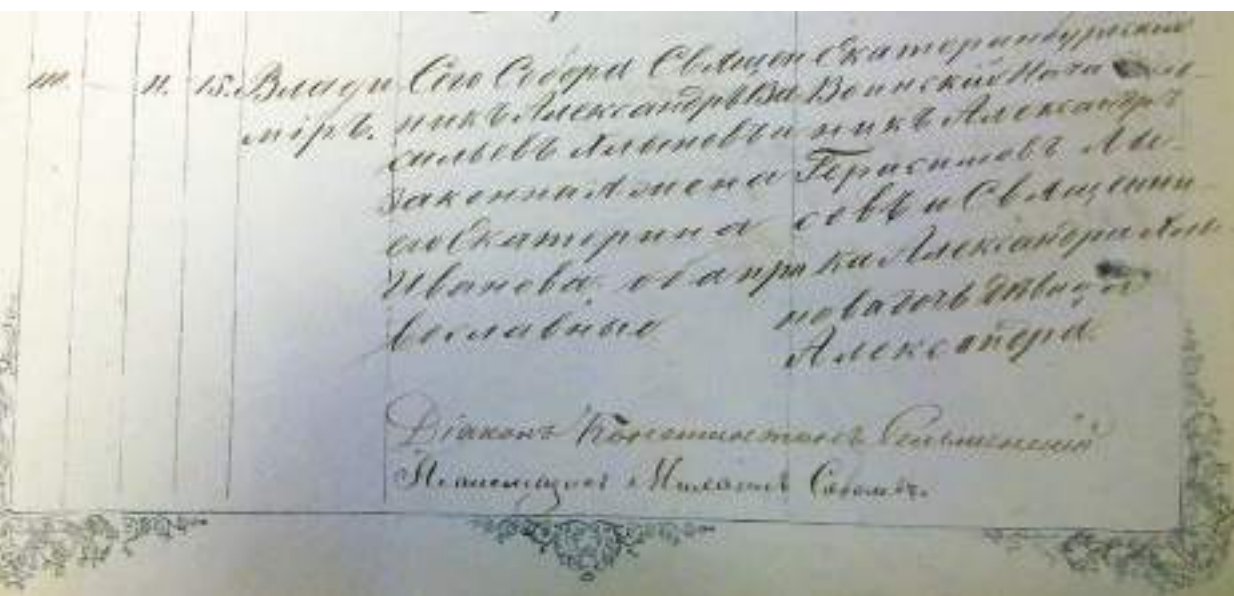 м. — н. 13. Влади
міръ.
Сего Собора Священ
никъ Александръ Ва
сильевъ Хлыновъ и
законная жена
его Екатерина
Иванова, оба пра
вославные
Екатеринбургский
Воинский Началь
никъ Александръ
Герасимовъ
совъ и Священни
ка Александра Хлы
нова дочь девица
Александра.
Діаконъ Константинъ
Псаломщикъ